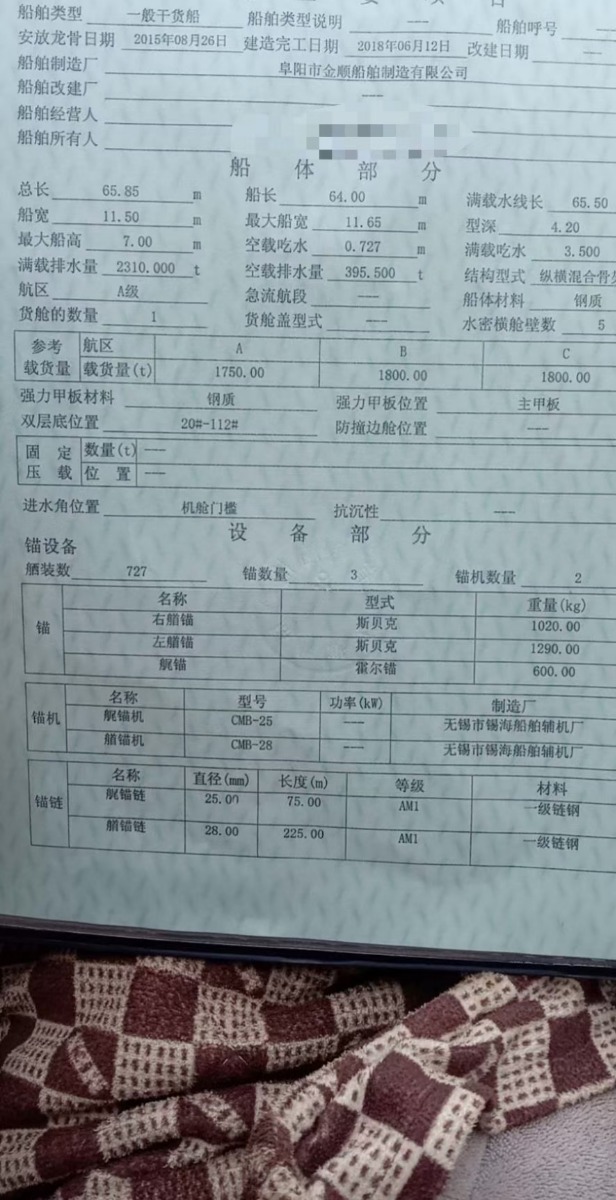 船舶类型 一般干货船 船舶类型说明 --- 船舶呼号
安放龙骨日期 2015年08月26日 建造完工日期 2018年06月12日 改建日期 ---
船舶制造厂 阜阳市金顺船舶制造有限公司
船舶改建厂 ---
船舶经营人
船舶所有人
船体部分
总长 65.85 m 船长 64.00 m 满载水线长 65.50
船宽 11.50 m 最大船宽 11.65 m 型深 4.20
最大船高 7.00 m 空载吃水 0.727 m 满载吃水 3.500
满载排水量 2310.000 t 空载排水量 395.500 t 结构型式 纵横混合骨
航区 A级 急流航段 --- 船体材料 钢质
货舱的数量 1 货舱盖型式 --- 水密横舱壁数 5
参考载货量 航区 A B C
载货量(t) 1750.00 1800.00 1800.00
强力甲板材料 钢质 强力甲板位置 主甲板
双层底位置 20#-112# 防撞边舱位置 ---
固定压载 数量(t) ---
位置 ---
进水角位置 机舱门槛 抗沉性 ---
设备部分
锚设备
舾装数 727 锚数量 3 锚机数量 2
锚 名称 型式 重量(kg)
右艏锚 斯贝克 1020.00
左艏锚 斯贝克 1290.00
艉锚 霍尔锚 600.00
锚机 名称 型号 功率(kW) 制造厂
艉锚机 CMB-25 --- 无锡市锡海船舶辅机厂
艏锚机 CMB-28 --- 无锡市锡海船舶辅机厂
锚链 名称 直径(mm) 长度(m) 等级 材料
艉锚链 25.00 75.00 AM1 一级链钢
艏锚链 28.00 225.00 AM1 一级链钢